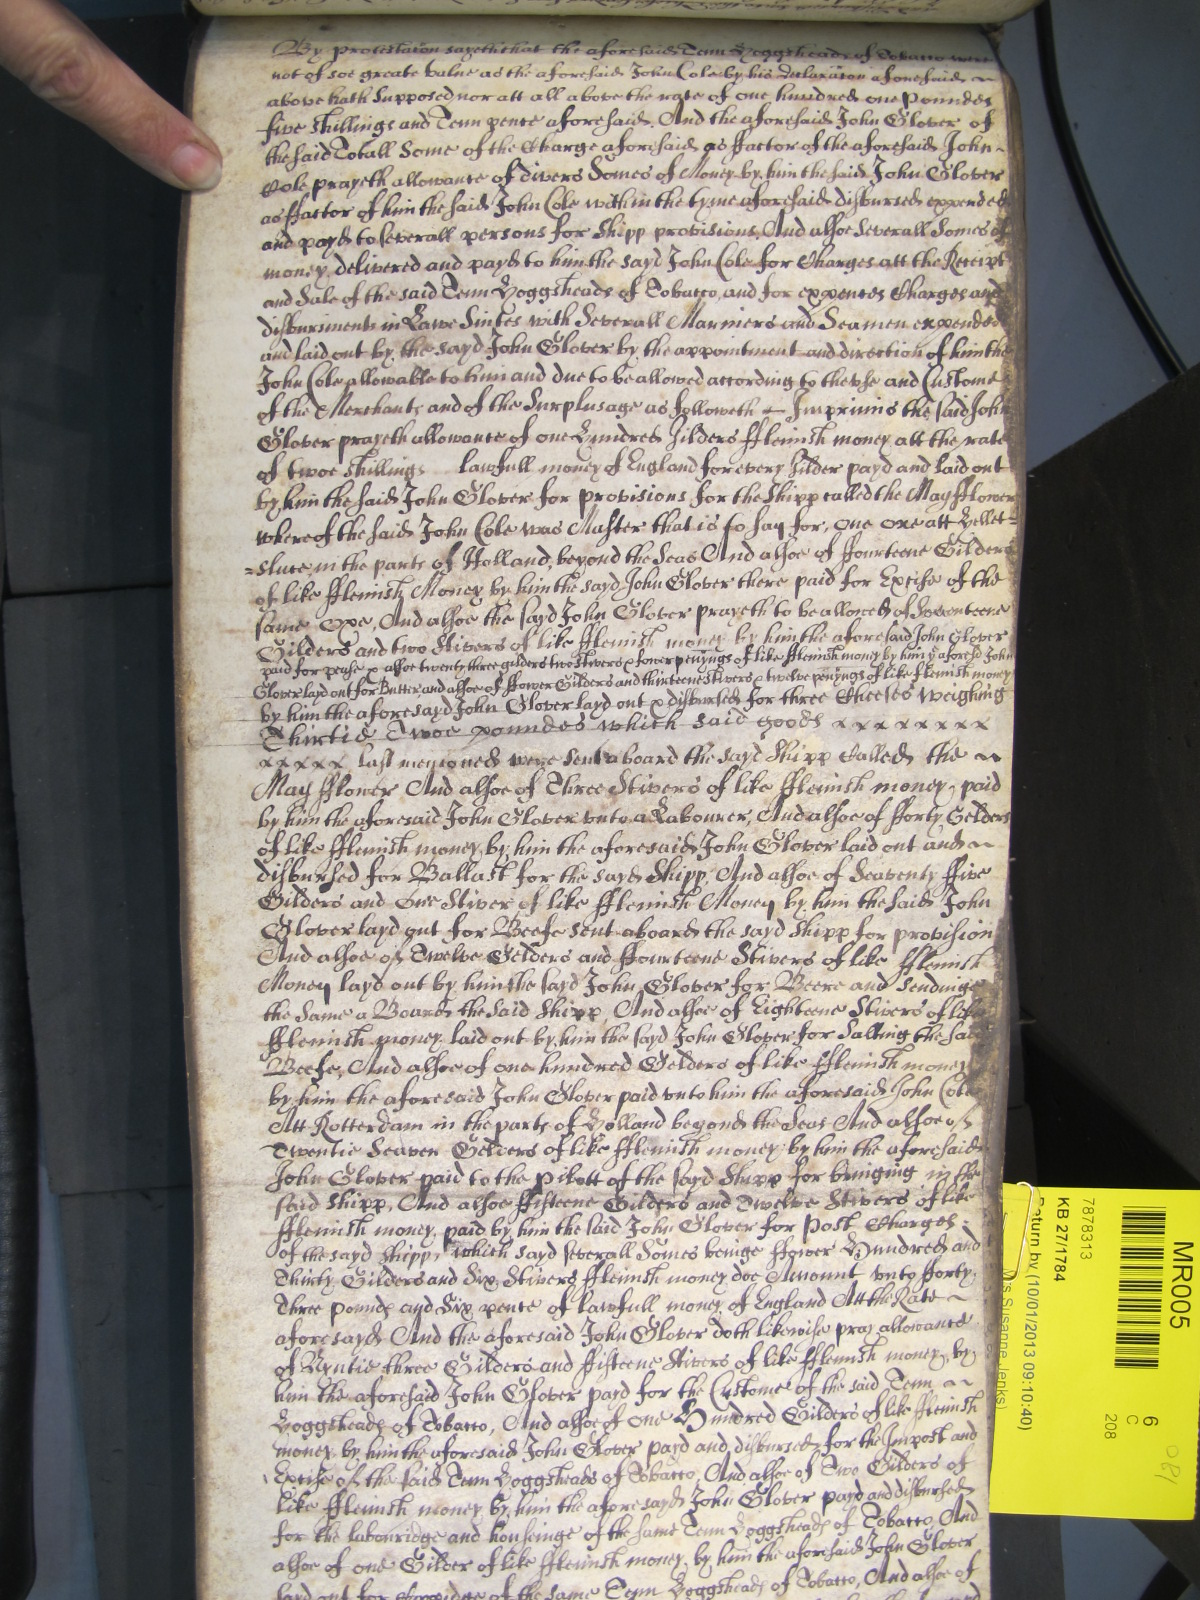 By protestation sayeth that the aforesaid Tenn Hoggsheads of Tobacco were
not of soe greate value as the aforesaid John Cole by his declaration aforesaid
above hath Supposed nor att all above the rate of one hundred one Poundes
five shillings and Tenn pence aforesaid. And the aforesaid John Glover of
the said Totall Some of the Charge aforesaid as ffactor of the aforesaid John
Cole prayeth allowance of divers Somes of Money by him the said John Glover
as ffactor of him the said John Cole within the tyme aforesaid disbursed expended
and payd to severall persons for Shipp provisions, And alsoe Severall Somes of
money delivered and payd to him the sayd John Cole for Charges att the Receipt
and Sale of the said Tenn Hoggsheads of Tobacco, and for expences Charges and
disbursments in Lawe Suites with Severall Marriners and Seamen expended
and laid out by the sayd John Glover by the appointment and direction of him the
John Cole allowable to him and due to be allowed according to the vse and Custome
of the Merchants and of the Surplusage as followeth Imprimis the said John
Glover prayeth allowance of one Hundred Jilders fflemish money att the rate
of twoe shillings lawfull money of England for every Jilder payd and laid out
by him the said John Glover for provisions for the Shipp called the May fflower
whereof the said John Cole was Master that is to say for, one oxe att Hellet=
=sluce in the parts of Holland, beyond the Seas And alsoe of ffourteene Gilders
of like fflemish Money by him the sayd John Glover there paid for Excise of the
same Oxe, And alsoe the sayd John Glover prayeth to be allowed of Seventeene
Gilders and two Stivers of like fflemish money by him the aforesaid John Glover
paid for pease & alsoe twenty three gilders two stivers & fower penyngs of like fflemish money by him ye aforesd John
Glover layd out for Butter and alsoe of ffower Gilders and thirteene stivers & twelve penyngs of like fflemish money
by him the aforesayd John Glover layd out & disbursed for three Cheeses weighing
Thirtie Twoe poundes which said goods x x x x x x x x
x x x x x last mentioned were sent aboard the sayd Shipp Called the
May fflower And alsoe of Three Stivers of like fflemish money paid
by him the aforesaid John Glover vnto a Labourer, And alsoe of fforty Gelders
of like fflemish money by him the aforesaid John Glover laid out and
disbursed for Ballast for the sayd Shipp, And alsoe of Seaventy ffive
Gilders and One Stiver of like fflemish Money by him the said John
Glover layd out for Beefe sent aboard the sayd Shipp for provision
And alsoe of Twelve Gelders and ffourteene Stivers of like fflemish
Money layd out by him the sayd John Glover for Beere and Sendinge
the Same a Board the Said Shipp, And alsoe of Eighteene Stivers of like
fflemish money laid out by him the sayd John Glover for Salting the said
Beefe, And alsoe of one hundred Gelders of like fflemish money
by him the aforesaid John Glover paid vnto him the aforesaid John Cole
Att Rotterdam in the parts of Holland beyond the Seas And alsoe of
Twentie Seaven Gelders of like fflemish money by him the aforesaid
John Glover paid to the Pilott of the sayd Shipp for bringing in the
said Shipp, And alsoe ffifteene Gilders and Twelve Stivers of like
fflemish money paid by him the said John Glover for Post Charges
of the sayd Shipp, which sayd severall Somes beinge ffower Hundred and
Thirty Gilders and Six Stivers fflemish money doe Amount vnto fforty
Three pounds and Six pence of lawfull money of England Att the Rate
aforesayd And the aforesaid John Glover doth likewise pray allowance
of Nyntie three Gilders and ffifteene Stivers of like fflemish money, by
him the aforesaid John Glover payd for the Custome of the said Tenn
Hoggsheads of Tobacco, And alsoe of one Hundred Gilders of like fflemish
money by him the aforesaid John Glover payd and disbursed for the Impost and
Excise of the said Tenn Hoggsheads of Tobacco, And alsoe of Two Gilders of
like fflemish money by him the aforesayd John Glover payd and disbursed
for the labouridge and houseinge of the same Tenn Hoggsheads of Tobacco, And
alsoe of one Gilder of like fflemish money, by him the aforesaid John Glover
layd out for of the same Tenn Hoggsheads of Tobacco, And alsoe of
MR005
6
C
208
7878313
KB 27/1784
Return by (10/01/2013 09:10:40)
Mrs Susanne Jenks)